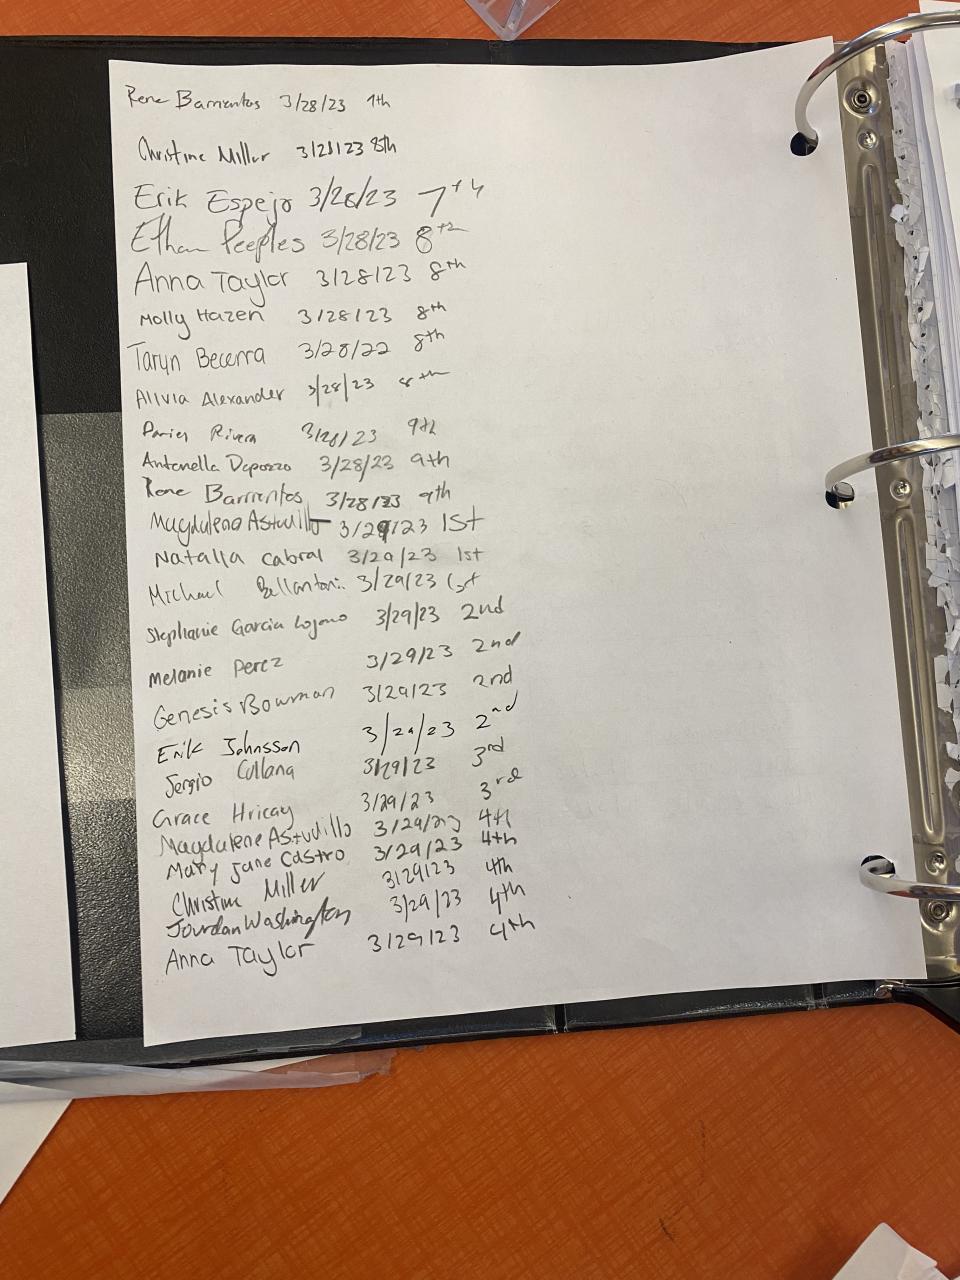 Rene Barrientos 3/28/23 7th
Christine Miller 3/28/23 8th
Erik Espejo 3/28/23 7th
Ethan Peeples 3/28/23 8th
Anna Taylor 3/28/23 8th
Molly Hazen 3/28/23 8th
Taryn Becerra 3/28/22 8th
Alivia Alexander 3/28/23 8th
Rivera 3/28/23 9th
Antonella 3/28/23 9th
Rene Barrientos 3/28/23 9th
Magdalena Astudillo 3/29/23 1st
Natalia Cabral 3/29/23 1st
Michael Bellantoni 3/29/23 1st
Stephanie Garcia Lozano 3/29/23 2nd
Melanie Perez 3/29/23 2nd
Genesis Bowman 3/29/23 2nd
Erik Johnsson 3/29/23 2nd
Sergio Collana 3/29/23 3rd
Grace Hricay 3/29/23 3rd
Magdalene Astudillo 3/29/23 4th
Mary Jane Castro 3/29/23 4th
Christine Miller 3/29/23 4th
Jourdan Washington 3/29/23 4th
Anna Taylor 3/29/23 4th